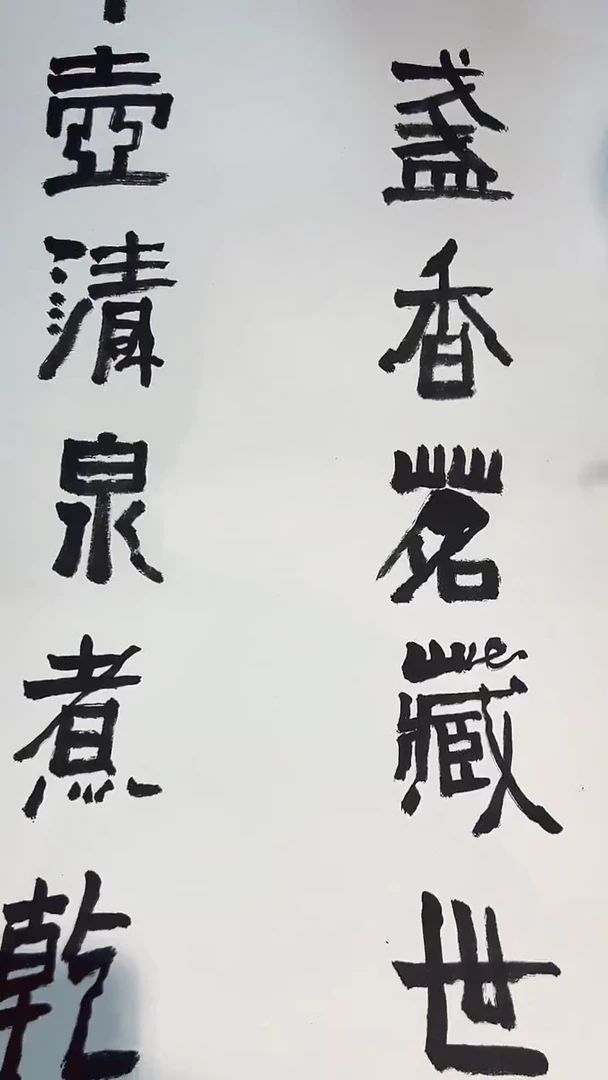 盏香茗藏世
壶清泉煮乾